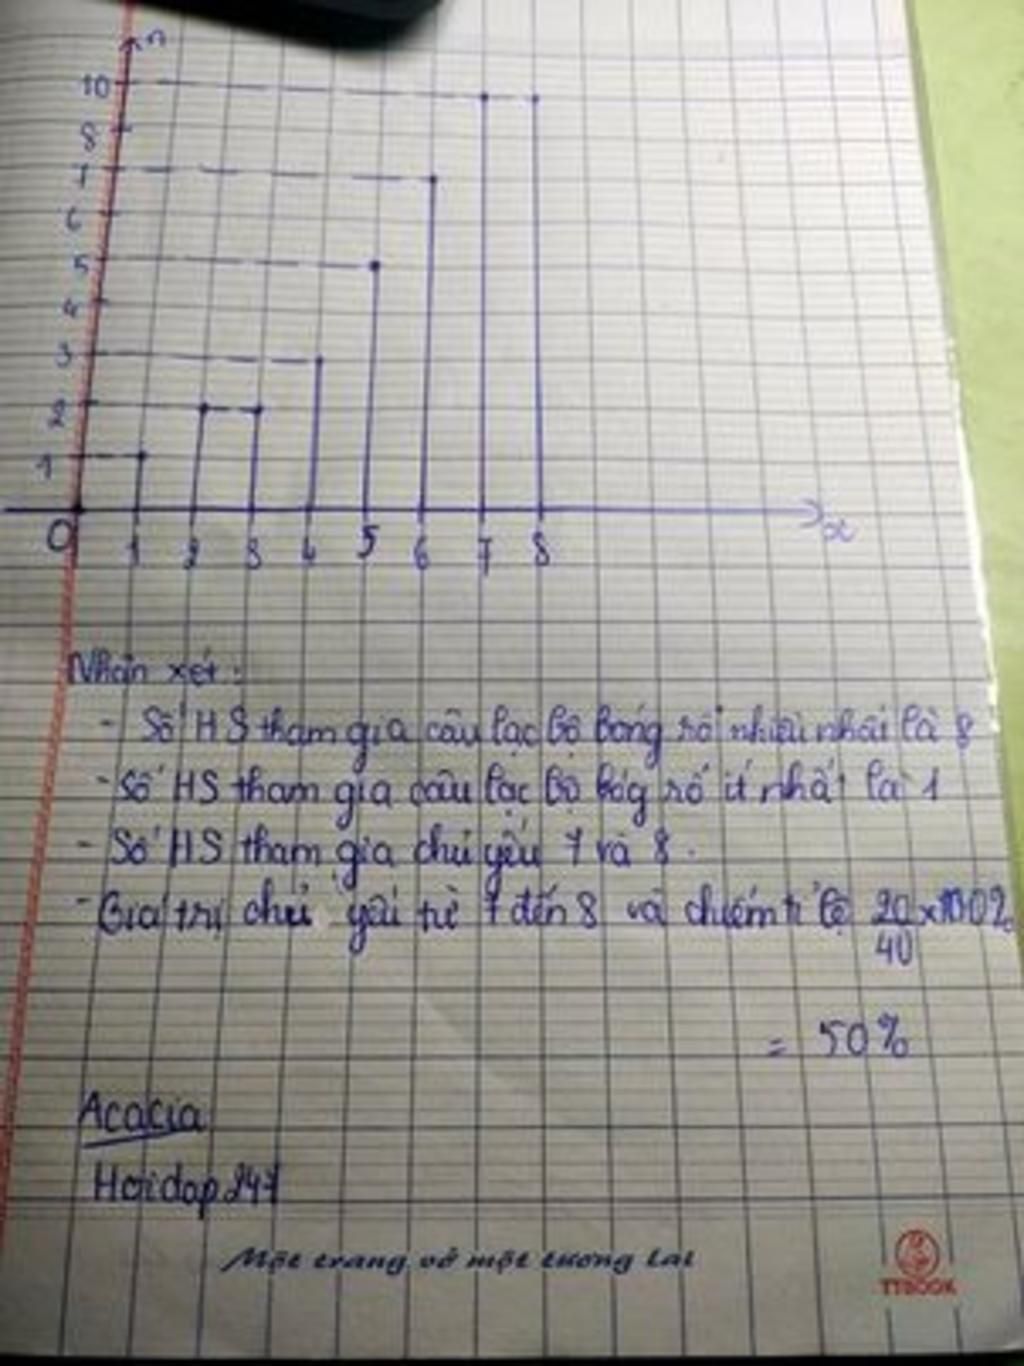 n
10
8
7
6
5
4
3
2
1
O 1 2 3 4 5 6 7 8 x
Nhận xét:
- Số HS tham gia câu lạc bộ bóng rổ nhiều nhất là 8
- Số HS tham gia câu lạc bộ bóg rổ ít nhất là 1
- Số HS tham gia chủ yếu 7 và 8.
- Giá trị chủ yếu từ 7 đến 8 và chiếm tỉ lệ 20/40 x100%
= 50%
Acacia
Hoidap247
Một trang vở một tương lai
TTBOOK